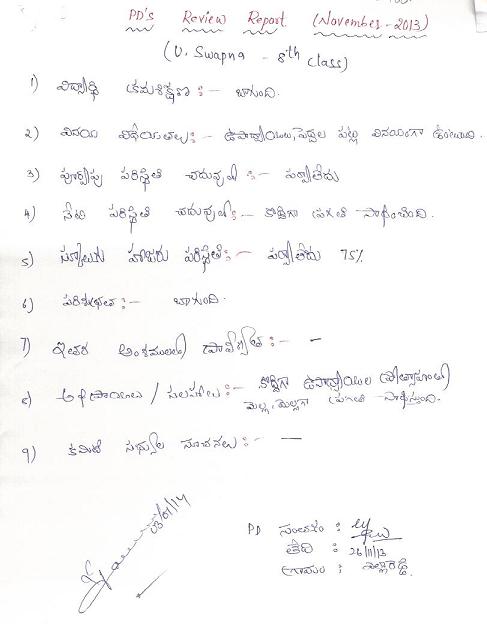 PD's Review Report (November-2013)
(V. Swapna - 8th class)
1) విద్యార్థి క్రమశిక్షణ :- బాగుంది.
2) వినయ విధేయతలు :- ఉపాధ్యాయులు, పెద్దల పట్ల వినయంగా ఉంటుంది.
3) పూర్వపు పరిస్థితి చదువు :- పర్వాలేదు
4) నేటి పరిస్థితి చదువు :- కొద్దిగా ప్రగతి సాధించింది.
5) స్కూలుకు హాజరు పరిస్థితి :- పర్వాలేదు 75%
6) పరిశుభ్రత :- బాగుంది.
7) ఇతర అంశములలో ప్రావీణ్యత :- -
8) అభిప్రాయాలు / సలహాలు :- కొద్దిగా ఉపాధ్యాయుల ప్రోత్సాహంతో
మెల్ల, మెల్లగా ప్రగతి సాధిస్తుంది.
9) కమిటి సభ్యుల సూచనలు :- -
03/01/14
PD సంతకం :
తేది : 26/11/13
గ్రామం :